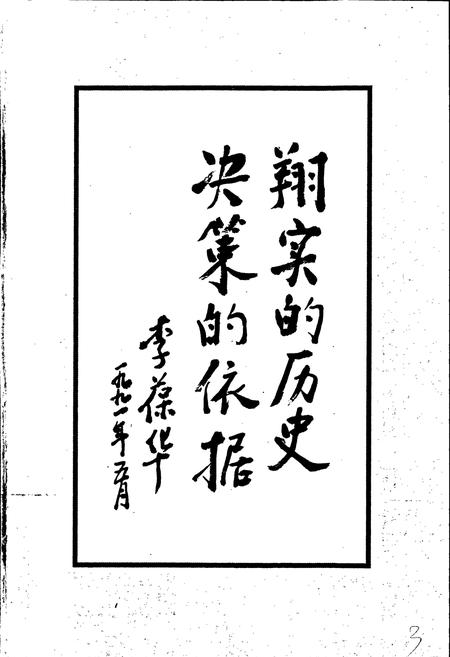 翔实的历史
决策的依据
李葆华
一九九一年五月
3